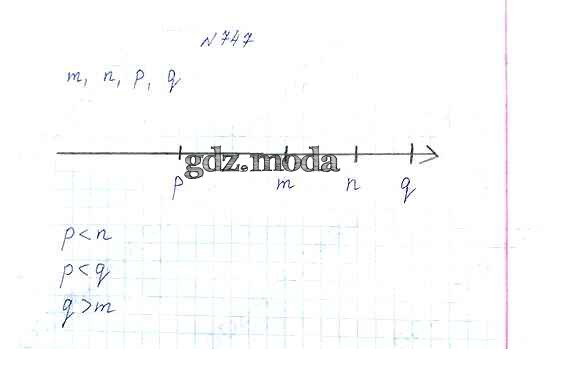 N 747
m, n, p, q
gdz.moda
p m n q
p < n
p < q
q > m